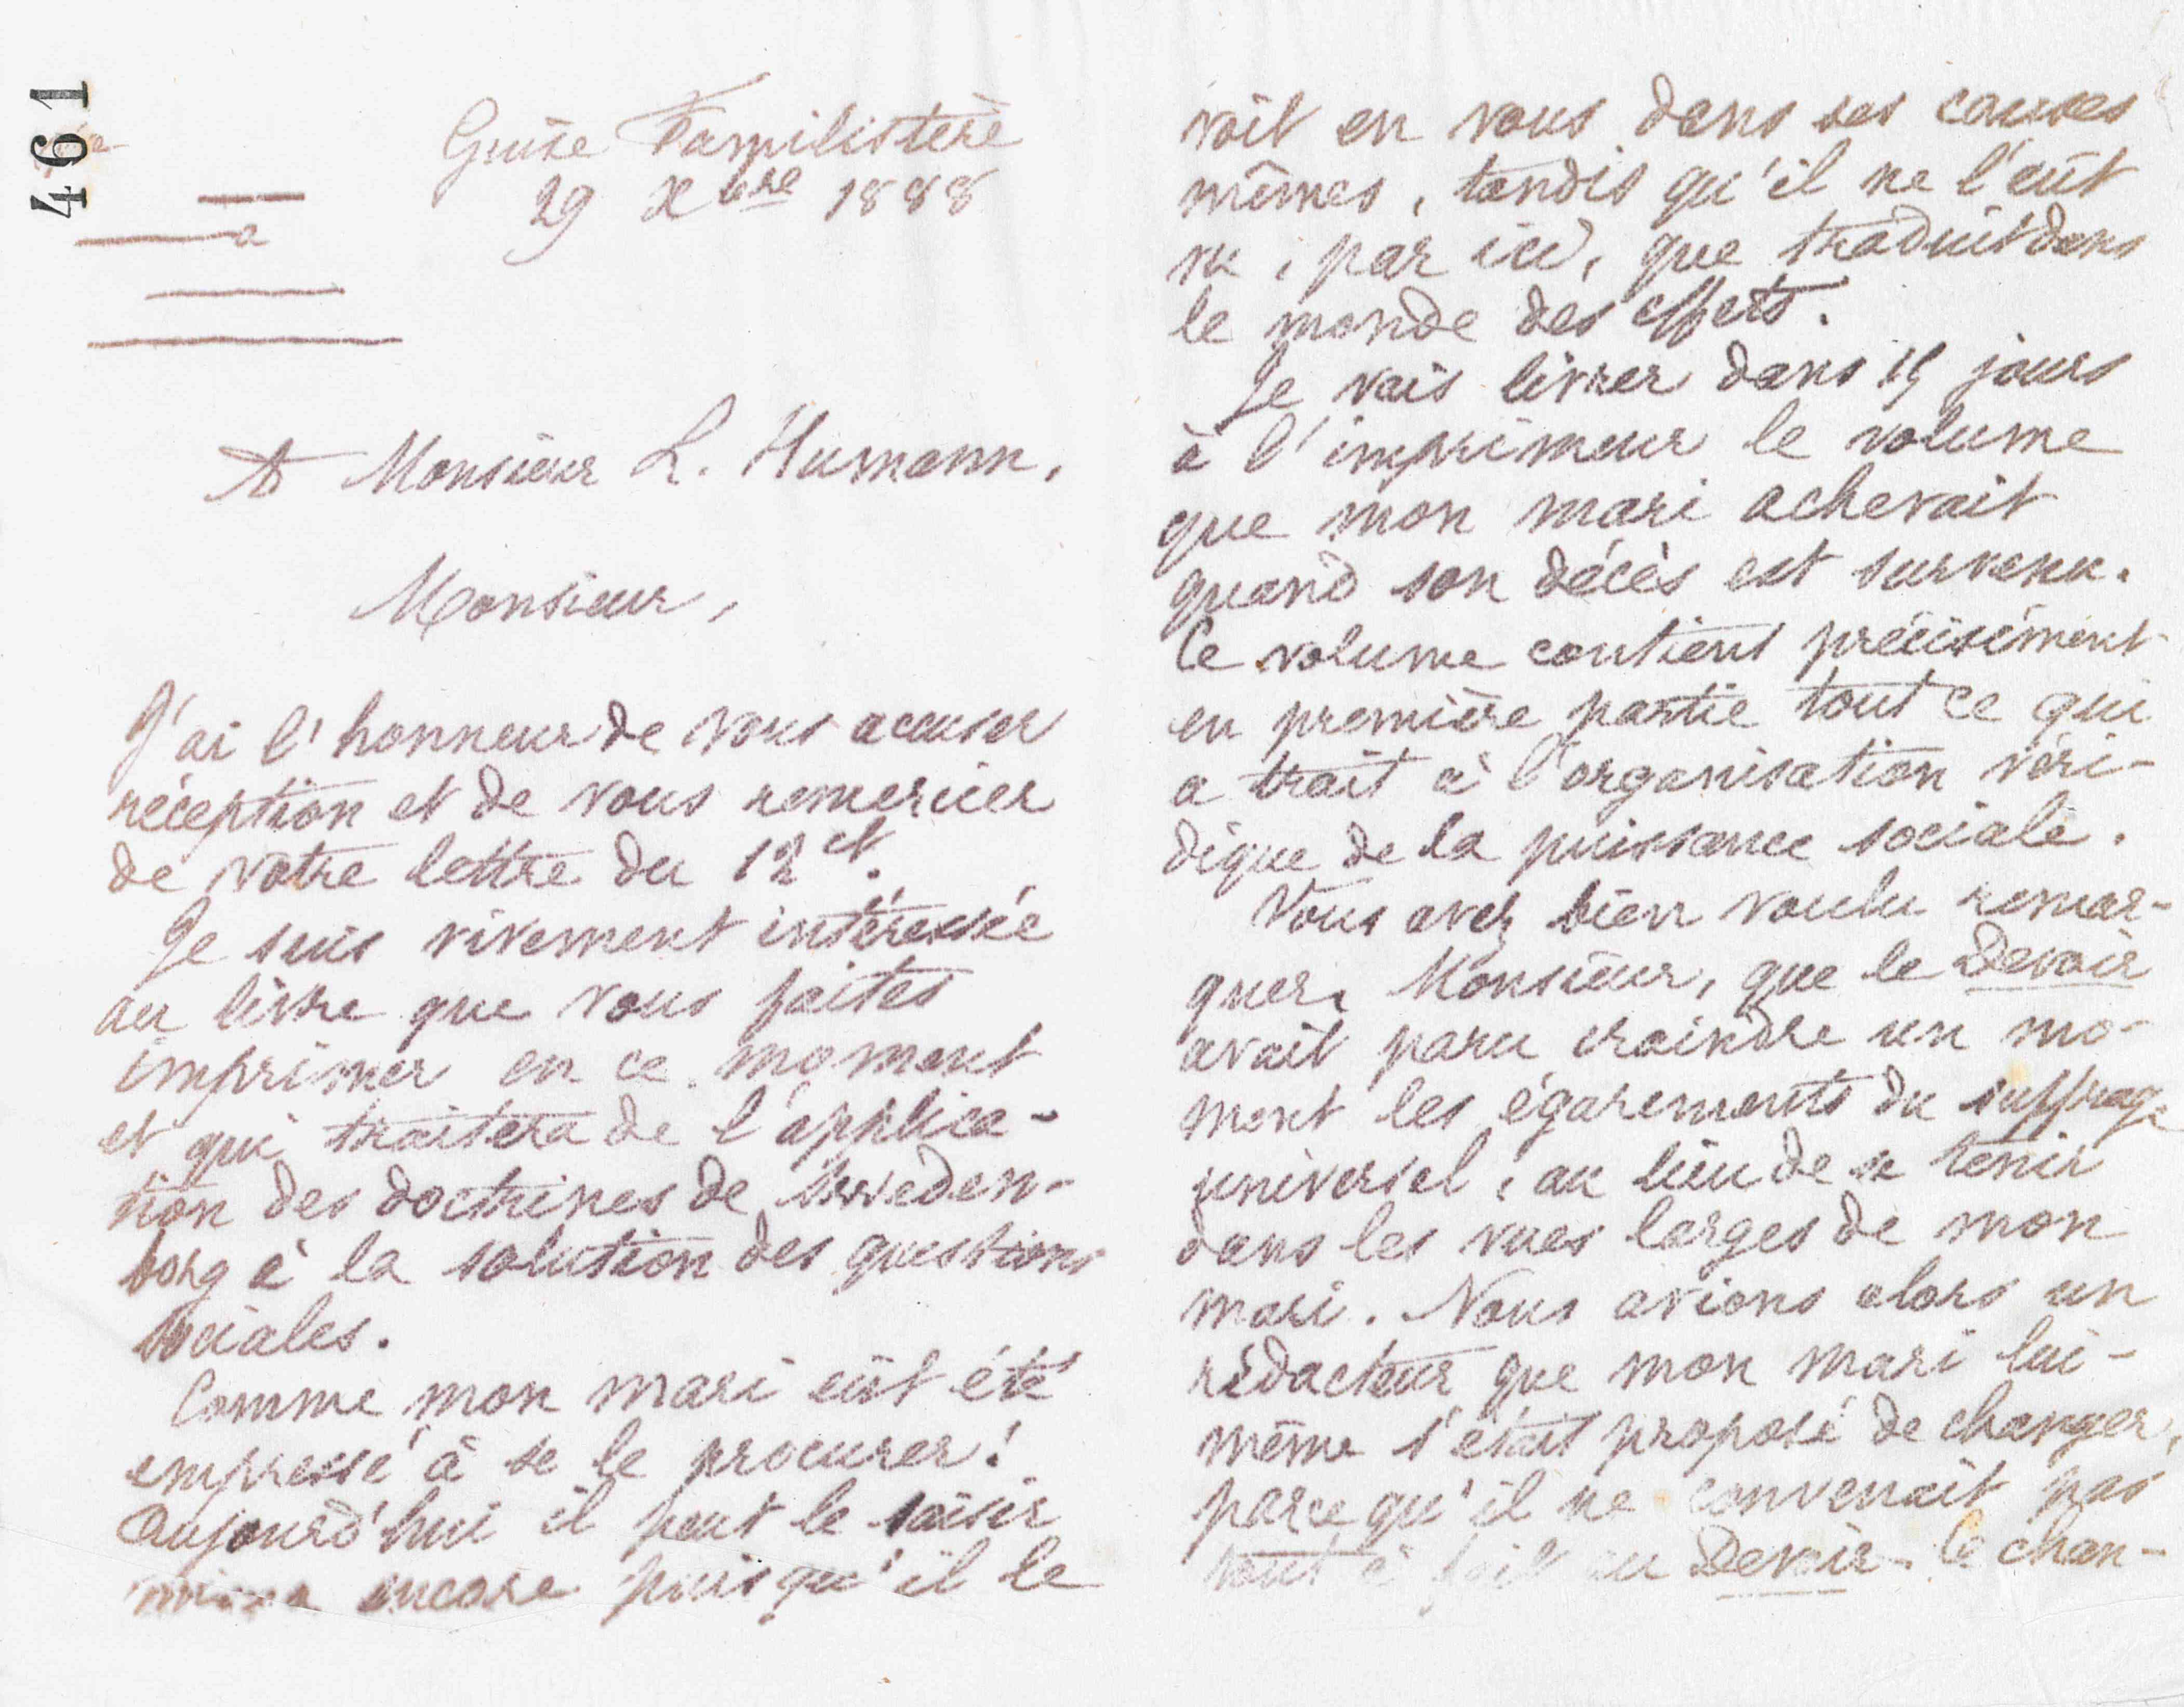 461
a
Guise Familistère
29 Xbre 1888
A Monsieur L. Humann,
Monsieur,
J'ai l'honneur de vous accuser
réception et de vous remercier
de votre lettre du 12 ct.
Je suis vivement intéressée
au livre que vous faites
imprimer en ce moment
et qui traitera de l'applica-
tion des doctrines de Sweden-
borg à la solution des questions
sociales.
Comme mon mari eût été
empressé à se le procurer!
Aujourd'hui il peut le saisir
mieux encore puisqu'il le
voit en vous dans ses causes
mêmes, tandis qu'il ne l'eût
vu, par ici, que traduit dans
le monde des effets.
Je vais livrer dans 15 jours
à l'imprimeur le volume
que mon mari achevait
quand son décès est survenu.
Ce volume contient précisément
en première partie tout ce qui
a trait à l'organisation véri-
dique de la puissance sociale.
Vous avez bien voulu remar-
quer, Monsieur, que le Devoir
avait paru craindre un mo-
ment les égarements du suffrage
universel, au lieu de se tenir
dans les vues larges de mon
mari. Nous avions alors un
rédacteur que mon mari lui-
même s'était proposé de changer,
parcequ'il ne convenait pas
tout à fait au Devoir. Ce chan-